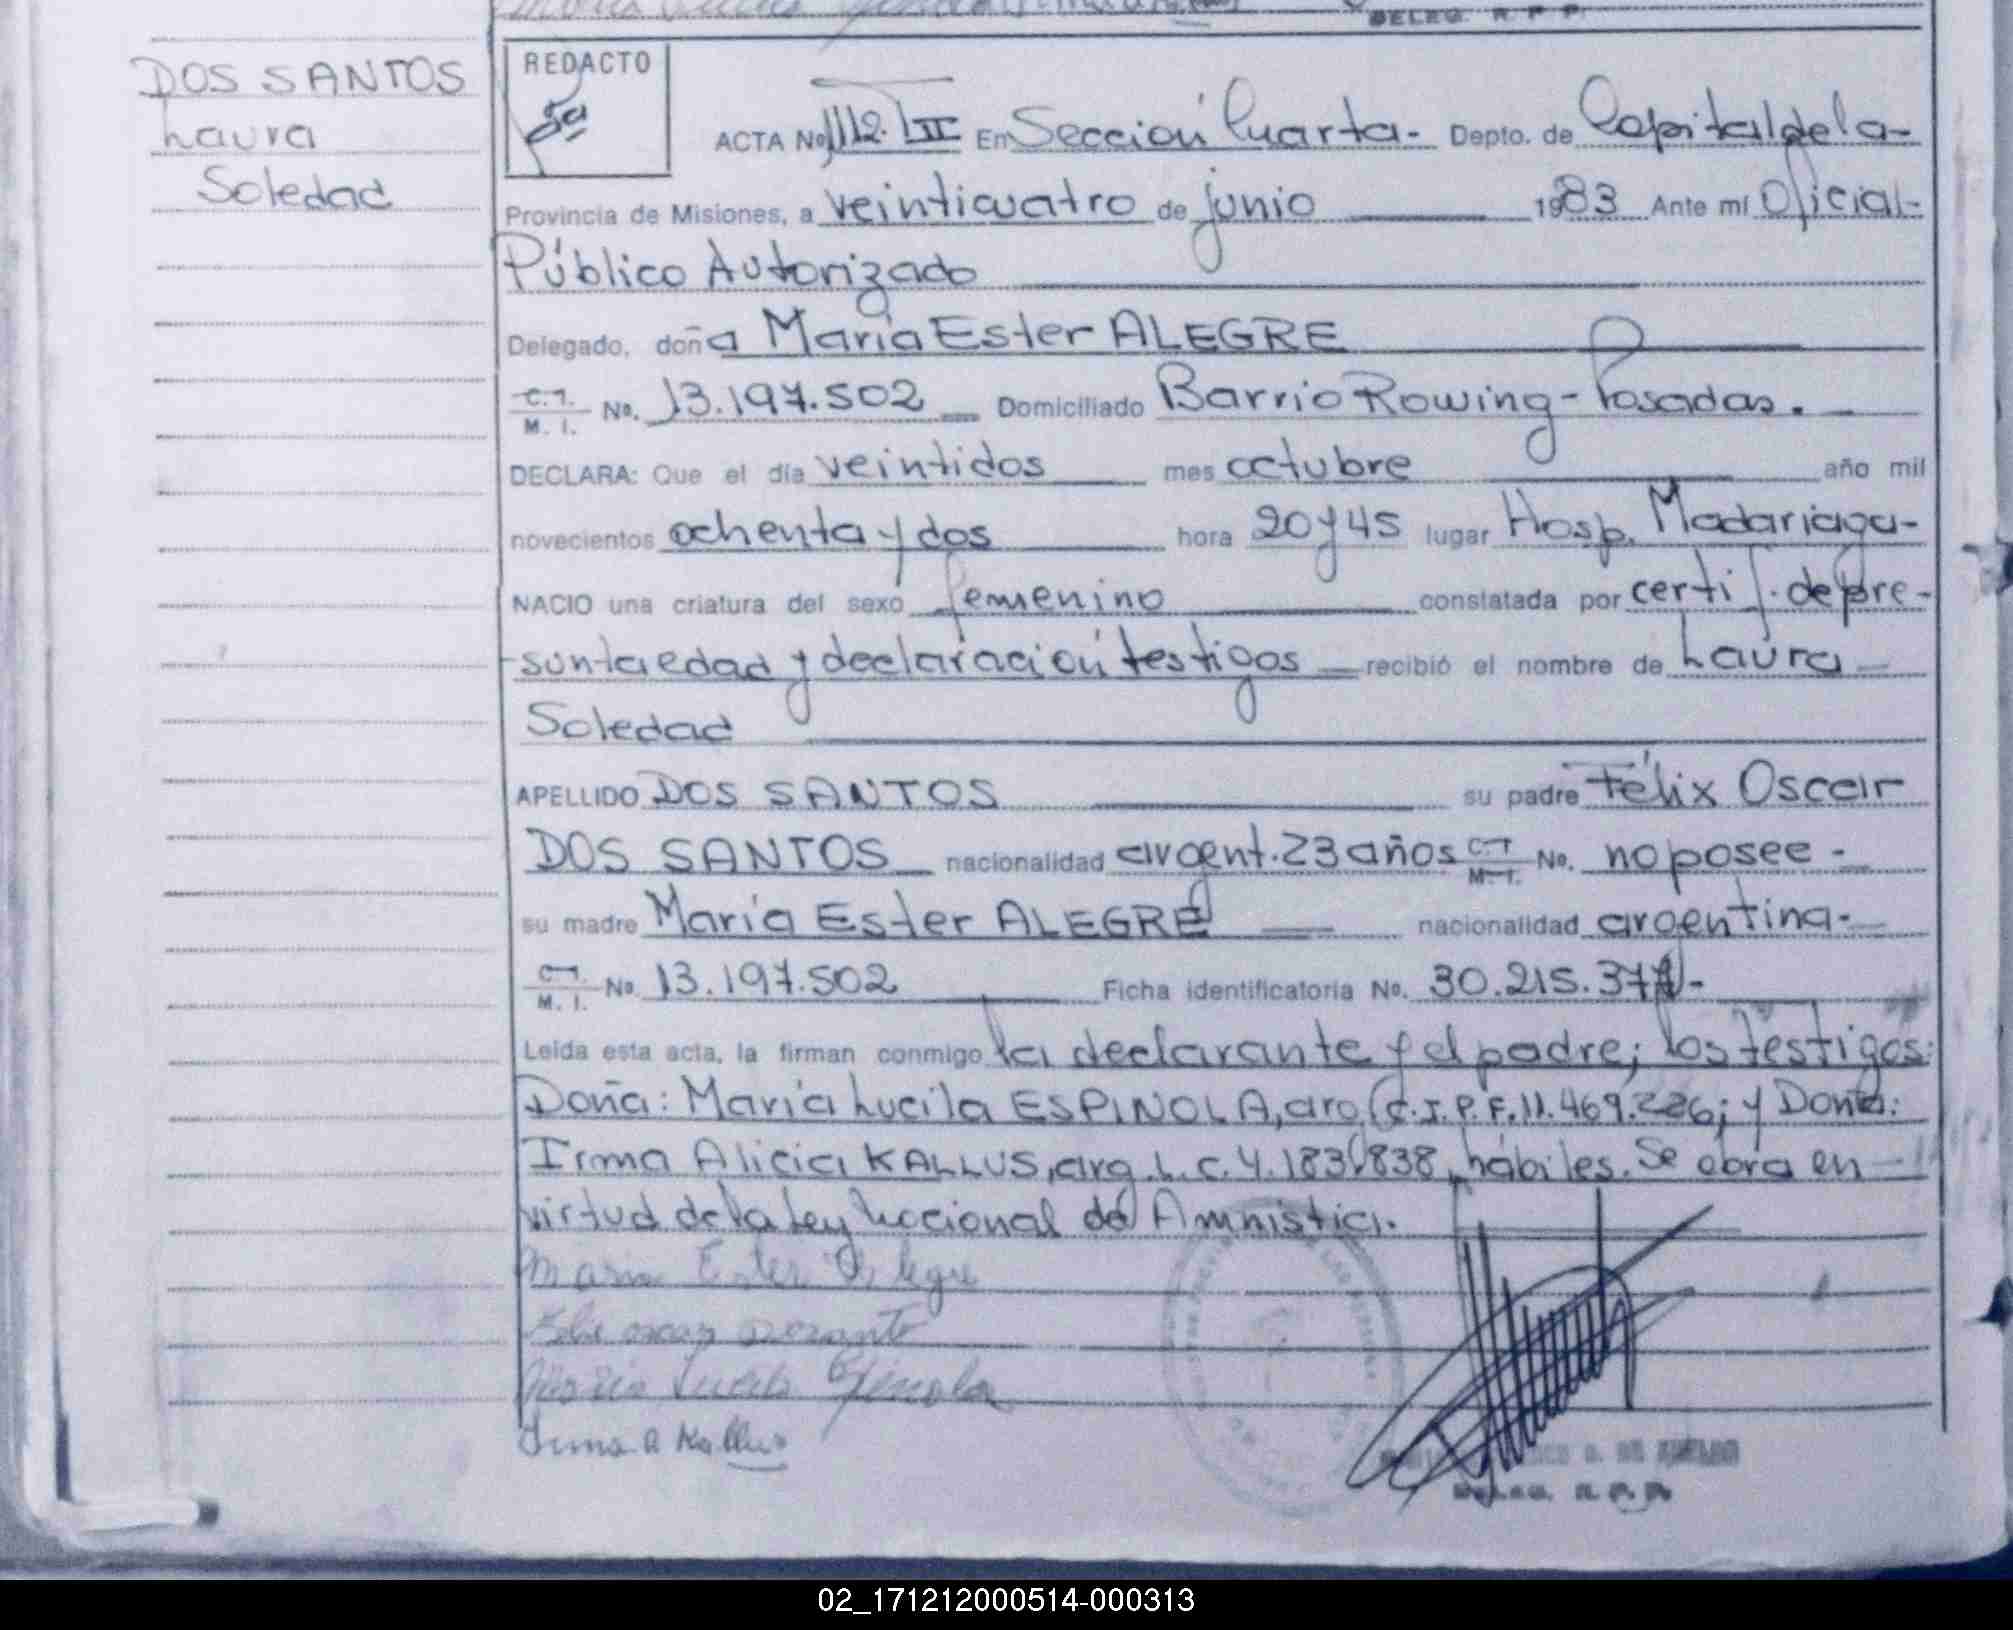 DELEG. R. P. P.
DOS SANTOS
Laura
Soledad
REDACTO
ACTA No 1112. TII En Sección Cuarta.- Depto. de Capital de la-
Provincia de Misiones, a veinticuatro de junio 1983 Ante mí Oficial-
Público Autorizado
Delegado, doña María Ester ALEGRE
C.I. M. I. No. 13.197.502 Domiciliado Barrio Rowing - Posadas.-
DECLARA: Que el día veintidos mes octubre año mil
novecientos ochenta y dos hora 20 y 45 lugar Hosp. Madariaga-
NACIO una criatura del sexo femenino constatada por certif. de pre-
sunta edad y declaración testigos recibió el nombre de Laura
Soledad
APELLIDO DOS SANTOS su padre Félix Oscar
DOS SANTOS nacionalidad argent. 23 años C.I. M. I. No. no posee -
su madre María Ester ALEGRE nacionalidad argentina.-
C.I. M. I. No 13.197.502 Ficha identificatoria No. 30.215.377-
Leída esta acta, la firman conmigo la declarante y el padre; los testigos:
Doña: María Lucila ESPINOLA, arg. C.I.P.F. 11.469.226; y Doña:
Irma Alicia KALLUS, arg. L.C. 4.183.838, hábiles. Se obra en
virtud de la Ley Nacional de Amnistia.
Maria Ester Alegre
Maria Lucila Espinola
Irma A Kallus
DELEG. R. P. P.
02_171212000514-000313